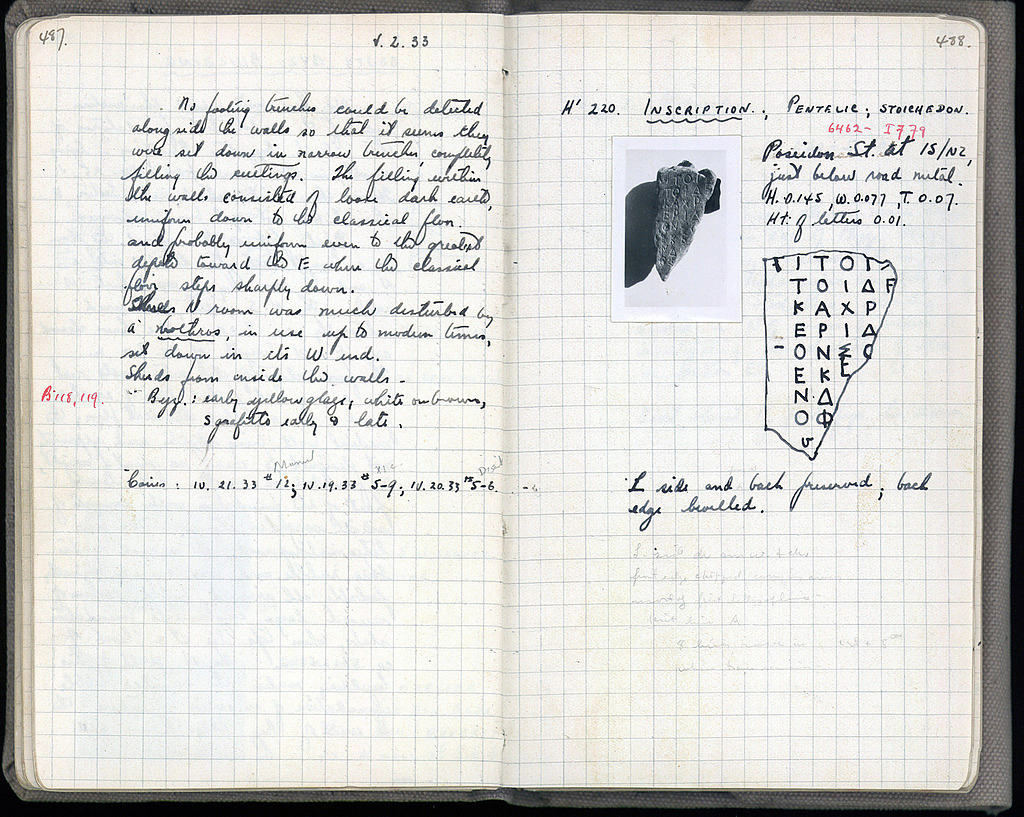 487.
V. 2. 33
No footing trenches could be detected
alongside the walls so that it seems they
were set down in narrow trenches, completely
filling the cuttings. The filling within
the walls consisted of loose dark earth,
uniform down to the classical floor
and probably uniform even to the greatest
depth toward the E where the classical
floor steps sharply down.
N room was much disturbed by
a bothros, in use up to modern times,
set down in its W end.
Sherds from inside the walls -
B' 118, 119.
Byz.: early yellow glaze, white on brown,
sgrafitto early & late.
Manuel
Coins: IV. 21. 33 #12; IV. 19. 33 #5-9; IV. 20. 33 #5-6.
488.
H' 220. INSCRIPTION., PENTELIC, STOICHEDON.
6462- I 779
Poseidon St. at 15/NZ,
just below road metal.
H. 0.145, W. 0.077, T. 0.07.
Ht. of letters 0.01.
Ι Τ Ο Γ
Τ Ο Ι Δ F
Κ Α Χ Ρ
Ε Ρ Ι Δ
Ο Ν Σ Ο
Ε Κ Ε
Ν Δ
Ο Φ
L side and back preserved; back
edge bevelled.